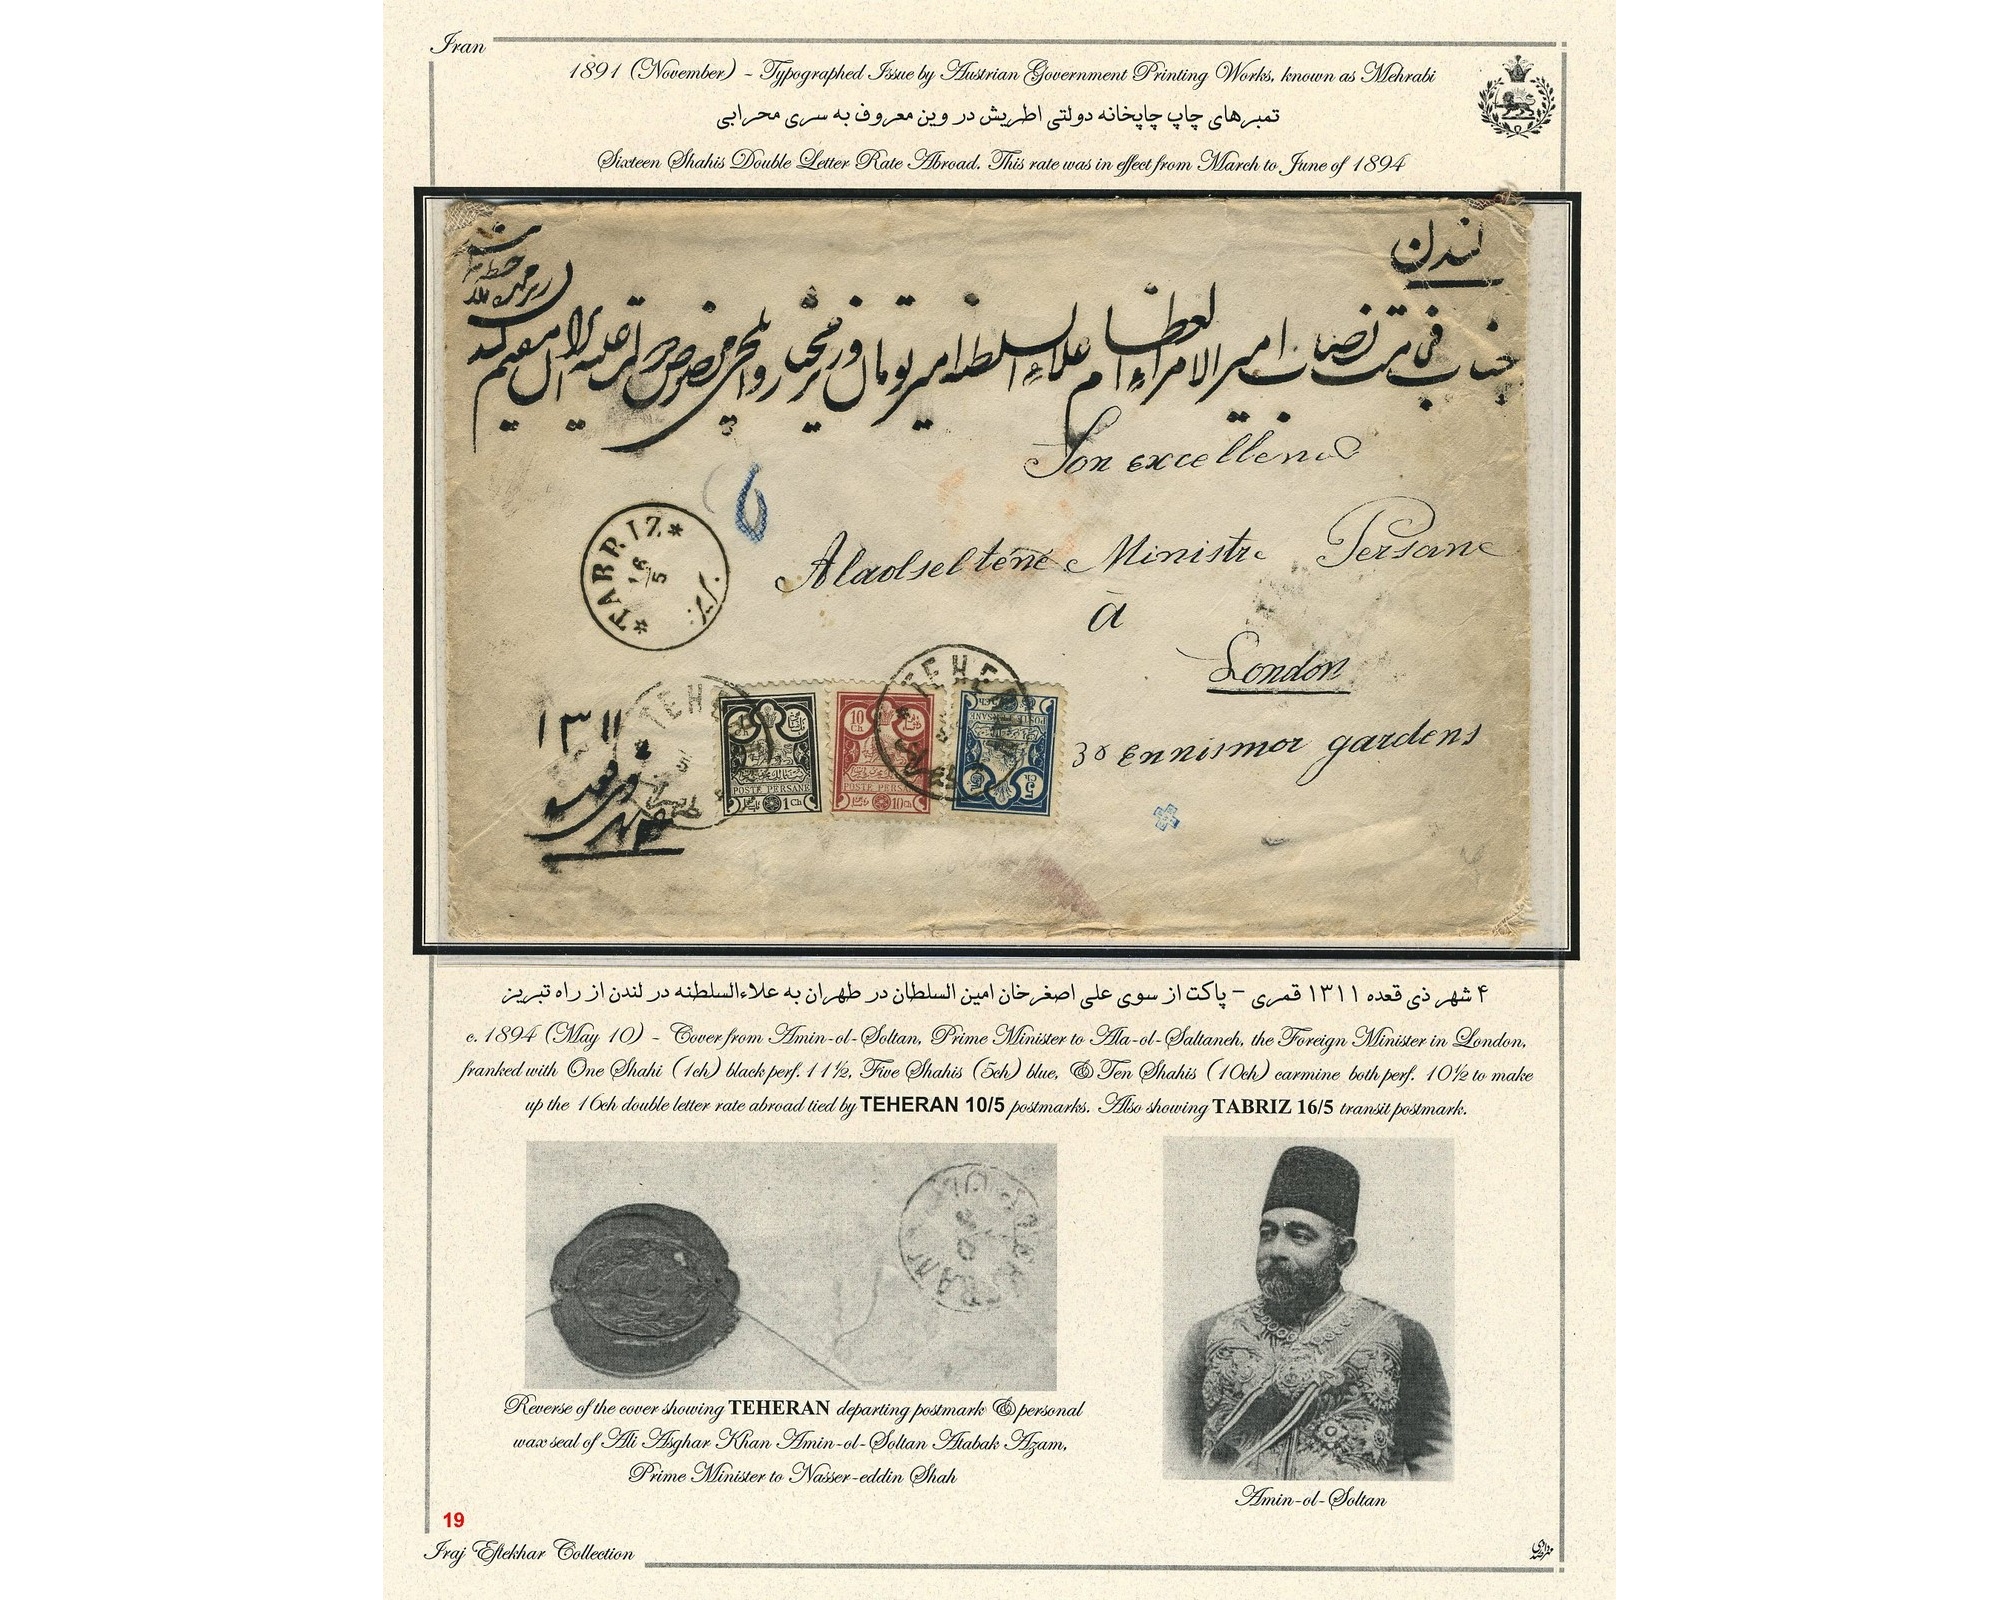 Iran
1891 (November) - Typographed Issue by Austrian Government Printing Works, known as Mehrabi
تمبرهای چاپ چاپخانه دولتی اطریش در وین معروف به سری محرابی
Sixteen Shahis Double Letter Rate Abroad. This rate was in effect from March to June of 1894
لندن
Son excellence
Alaolselténé Ministre Persane
à
London
30 Ennismor gardens
TABRIZ
16/5
تبریز
TEHE
TEHE
۱۳۱۱
1 Ch
POSTE PERSANE
1 Ch
10 Ch
POSTE PERSANE
10 Ch
5 Ch
POSTE PERSANE
5 Ch
۴ شهر ذی قعده ۱۳۱۱ قمری – پاکت از سوی علی اصغرخان امین السلطان در طهران به علاءالسلطنه در لندن از راه تبریز
c. 1894 (May 10) - Cover from Amin-ol-Soltan, Prime Minister to Ala-ol-Saltaneh, the Foreign Minister in London,
franked with One Shahi (1ch) black perf. 11½, Five Shahis (5ch) blue, & Ten Shahis (10ch) carmine both perf. 10½ to make
up the 16ch double letter rate abroad tied by TEHERAN 10/5 postmarks. Also showing TABRIZ 16/5 transit postmark.
Reverse of the cover showing TEHERAN departing postmark & personal
wax seal of Ali Asghar Khan Amin-ol-Soltan Atabak Azam,
Prime Minister to Nasser-eddin Shah
Amin-ol-Soltan
19
Iraj Eftekhar Collection